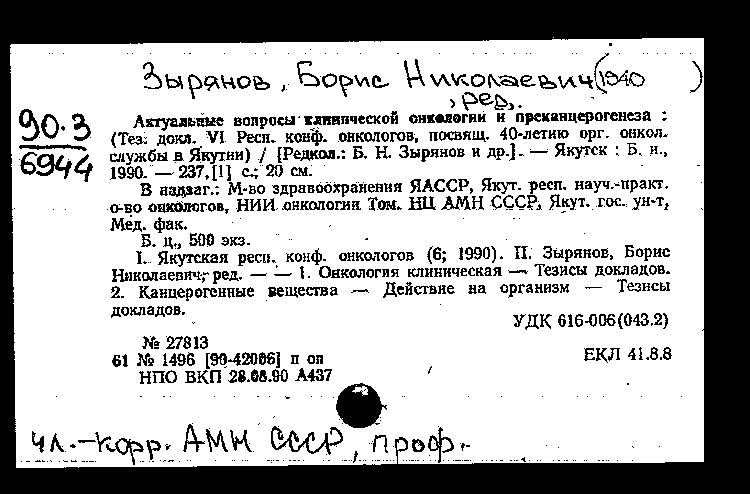 Зырянов, Борис Николаевич (1940 )
, ред.
90.3
6944
Актуальные вопросы клинической онкологии и преканцерогенеза :
(Тез. докл. VI Респ. конф. онкологов, посвящ. 40-летию орг. онкол.
службы в Якутии) / [Редкол.: Б. Н. Зырянов и др.]. — Якутск : Б. и.,
1990. — 237,[1] с.; 20 см.
В надзаг.: М-во здравоохранения ЯАССР, Якут. респ. науч.-практ.
о-во онкологов, НИИ онкологии Том. НЦ АМН СССР, Якут. гос. ун-т,
Мед. фак.
Б. ц., 500 экз.
I. Якутская респ. конф. онкологов (6; 1990). II. Зырянов, Борис
Николаевич, ред. — — 1. Онкология клиническая — Тезисы докладов.
2. Канцерогенные вещества — Действие на организм — Тезисы
докладов.
УДК 616-006(043.2)
№ 27813
61 № 1496 [90-42006] п оп
ЕКЛ 41.8.8
НПО ВКП 28.08.90 А437
чл.-корр. АМН СССР, проф.